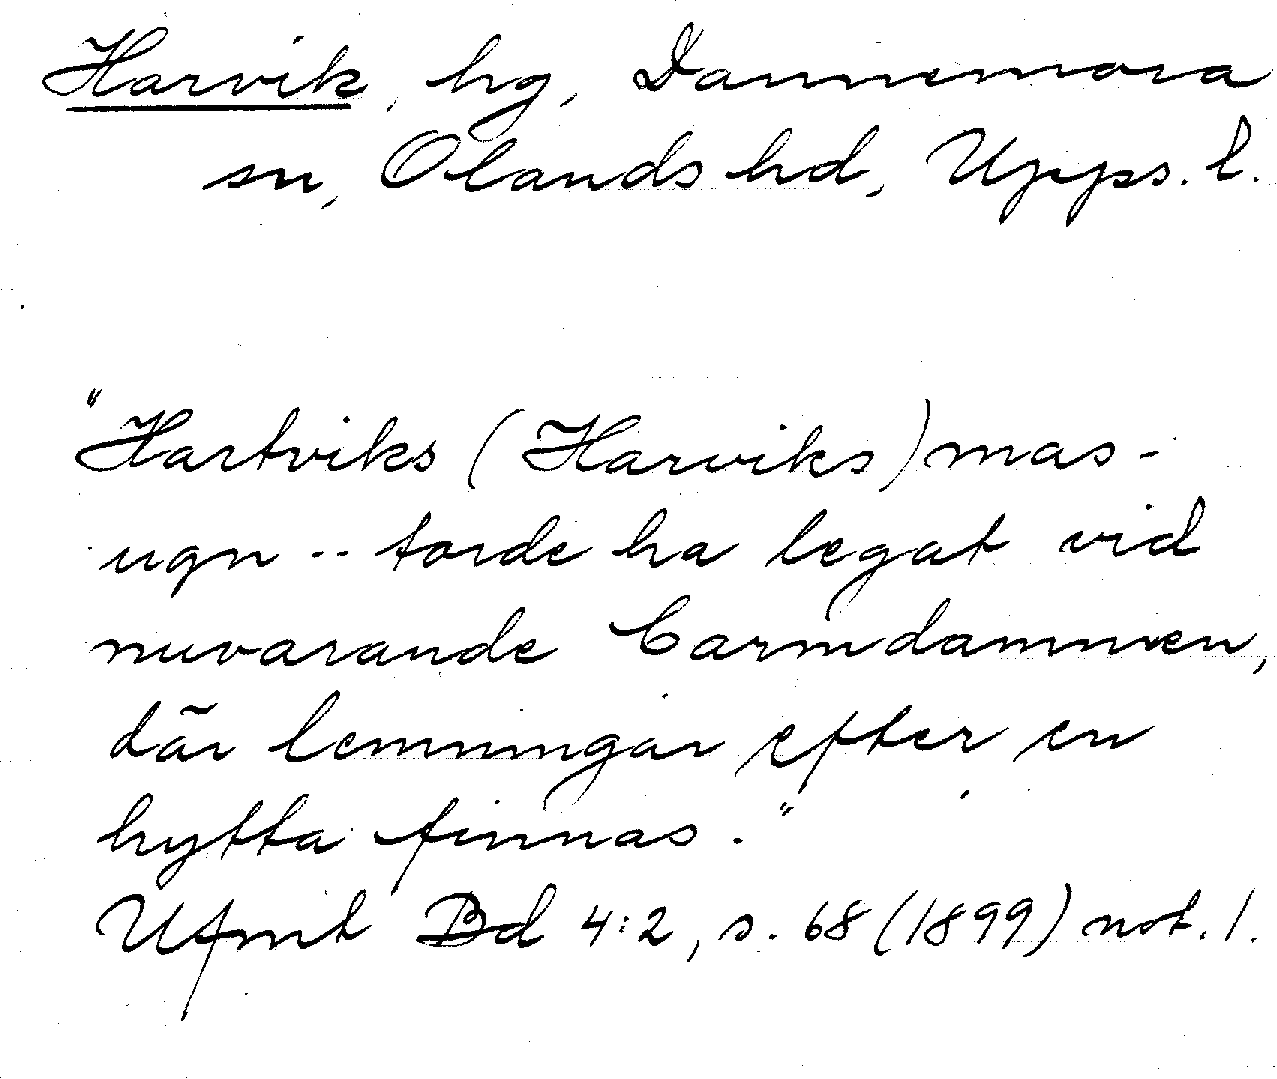 Harvik, hg, Dannemora
sn, Olands hd, Upps. l.
"Hartviks (Harviks) mas-
ugn -- torde ha legat vid
nuvarande Carmdammen,
där lemningar efter en
hytta finnas."
Ufmt Bd 4:2, s. 68 (1899) not. 1.